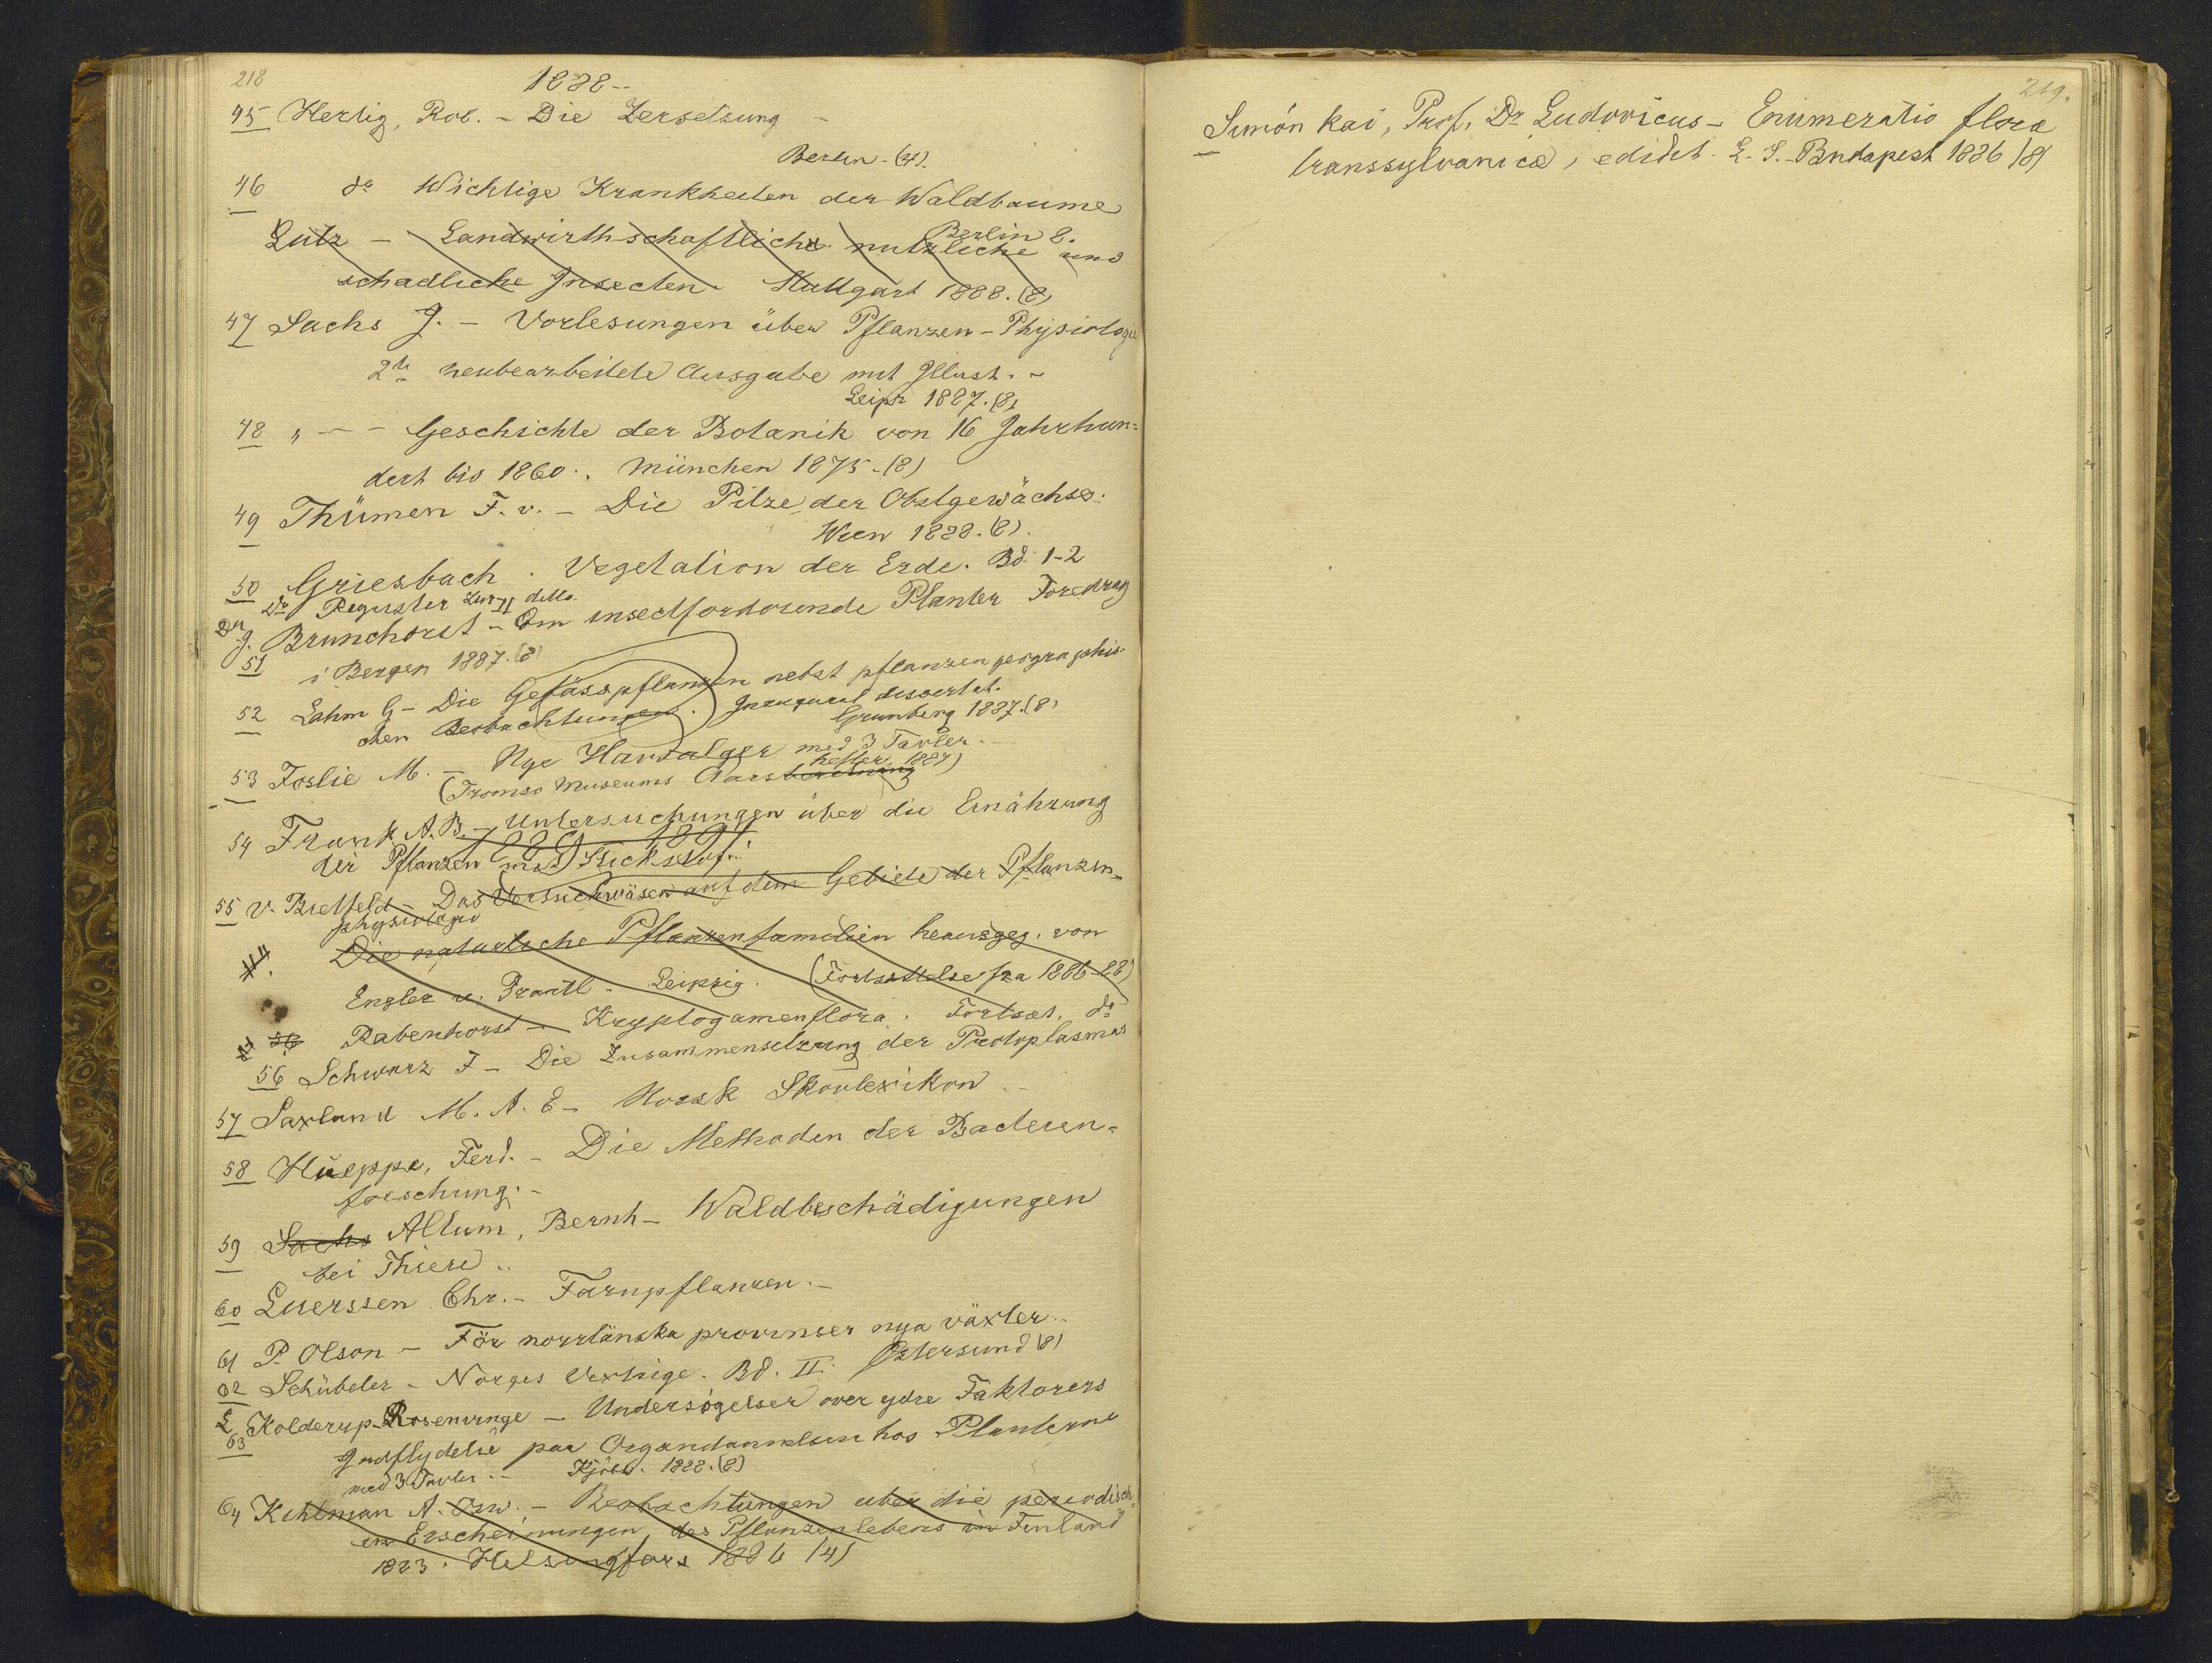 218
1888 --
45 Hertig, Rob. - Die Zersetzung -
Berlin - (4).
46 do Wichtige Krankheiten der Waldbaume
Berlin 8.
Lutz - Landwirthschaftliche nutzliche und
schadliche Insecten. Stuttgart 1888. (8)
47 Sachs J. - Vorlesungen über Pflanzen-Physiologie
2te neubearbeitete Ausgabe mit Illust. -
Leipz 1887. (8)
48 " - - Geschichte der Botanik von 16 Jahrhun-
dert bis 1860. München 1875. (8)
49 Thümen F. v. - Die Pilze der Obstgewächse.
Wien 1888. (8).
50 Griesbach. Vegetation der Erde. Bd. 1-2
Do Register zur detto
Dr J. Brunchorst - Om insectfordøiende Planter Foredrag
51 i Bergen 1887. (8)
52 Lahm G - Die Gefässpflanzen nebst pflanzengeographis-
chen Beobachtungen. Inaugural dissertat.
Grunberg 1887. (8)
53 Foslie M. - Nye Havsalger med 3 Tavler. -
(Tromsø Museums Aarsberetning
hefter 1887)
54 Frank A. B. - Untersuchungen über die Ernährung
der Pflanzen mit Stickstoff.
55 v. Bretfeld - Das Versuchwäsen auf dem Gebiete der Pflanzen-
physiologie
Die naturliche Pflanzenfamilien herausgeg. von
Engler u. Prantl - Leipzig. (Fortsættelse fra 1886-88)
56 Rabenhorst - Kryptogamenflora. Fortsæt. do
56 Schwarz F - Die Zusammensetzung der Protoplasmas
57 Saxlund M. A. E - Norsk Skovlexikon. -
58 Hüeppe, Ferd. - Die Methoden der Bacterien-
forschung. -
59 Sachs Altum, Bernh - Waldbeschädigungen
bei Thiere ..
60 Luerssen Chr. - Farnpflanzen. -
61 P. Olson - För norrländska provinser nya växter. -
Östersund (8)
62 Schübeler - Norges Vextrige. Bd. II.
L. Kolderup-Rosenvinge - Undersøgelser over ydre Faktorers
63
Indflydelse paa Organdannelsen hos Planterne
med 3 Tavler. - Kjöbh. 1888. (8)
64 Kihlman A. Osw. - Beobachtungen uber die periodisch-
en Erscheinungen des Pflanzenlebens in Finland
1883. Helsingfors 1886 (4)
219.
Simónkai, Prof. Dr Ludovicus - Enumeratio floræ
transsylvanicæ, edidit. L. S. - Budapest 1886 (8)